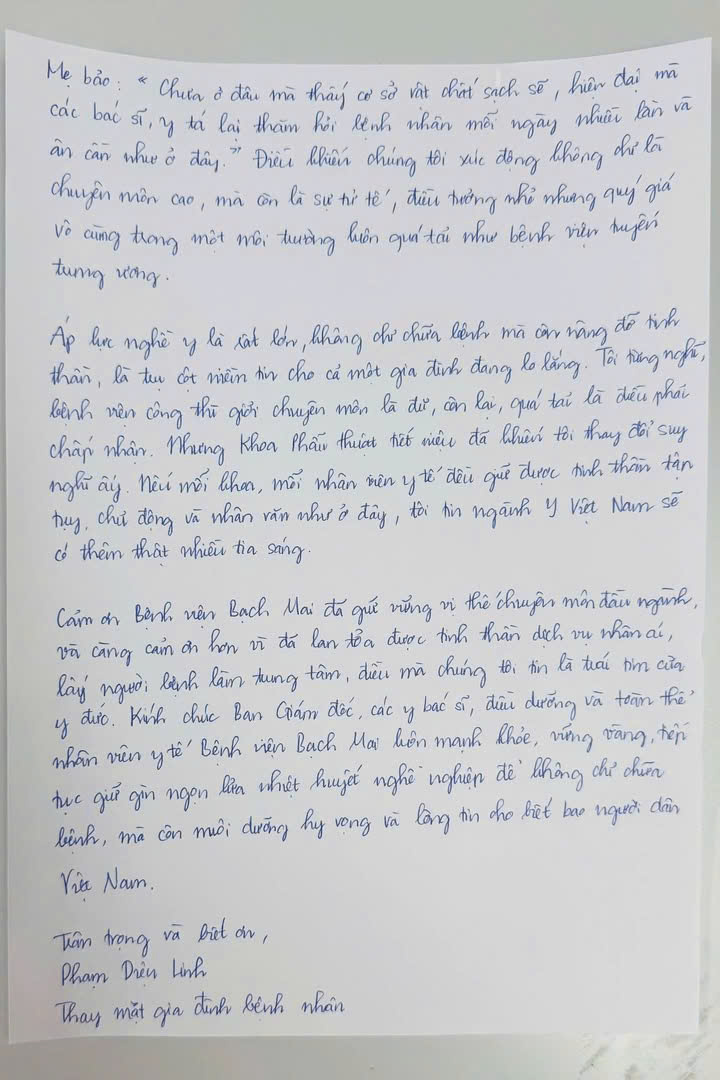 Mẹ bảo: "Chưa ở đâu mà thấy cơ sở vật chất sạch sẽ, hiện đại mà
các bác sĩ, y tá lại thăm hỏi bệnh nhân mỗi ngày nhiều lần và
ân cần như ở đây." Điều khiến chúng tôi xúc động không chỉ là
chuyên môn cao, mà còn là sự tử tế, điều tưởng nhỏ nhưng quý giá
vô cùng trong một môi trường luôn quá tải như bệnh viện tuyến
trung ương.
Áp lực nghề y là rất lớn, không chỉ chữa bệnh mà còn nâng đỡ tinh
thần, là trụ cột niềm tin cho cả một gia đình đang lo lắng. Tôi từng nghĩ,
bệnh viện công thì giỏi chuyên môn là đủ, còn lại, quá tải là điều phải
chấp nhận. Nhưng Khoa Phẫu thuật tiết niệu đã khiến tôi thay đổi suy
nghĩ ấy. Nếu mỗi khoa, mỗi nhân viên y tế đều giữ được tinh thần tận
tụy, chủ động và nhân văn như ở đây, tôi tin ngành Y Việt Nam sẽ
có thêm thật nhiều tia sáng.
Cảm ơn Bệnh viện Bạch Mai đã giữ vững vị thế chuyên môn đầu ngành,
và càng cảm ơn hơn vì đã lan tỏa được tinh thần dịch vụ nhân ái,
lấy người bệnh làm trung tâm, điều mà chúng tôi tin là trái tim của
y đức. Kính chúc Ban Giám đốc, các y bác sĩ, điều dưỡng và toàn thể
nhân viên y tế Bệnh viện Bạch Mai luôn mạnh khỏe, vững vàng, tiếp
tục giữ gìn ngọn lửa nhiệt huyết nghề nghiệp để không chỉ chữa
bệnh, mà còn nuôi dưỡng hy vọng và lòng tin cho biết bao người dân
Việt Nam.
Trân trọng và biết ơn,
Phạm Diệu Linh
Thay mặt gia đình bệnh nhân